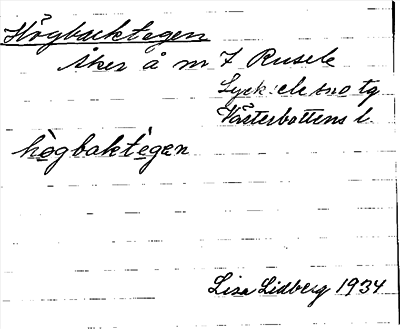 Högbacktegen
Åker å nr 7 Rusele
Lycksele sno tg
Västerbottens l.
hògbaktègen
Lisa Lidberg 1934